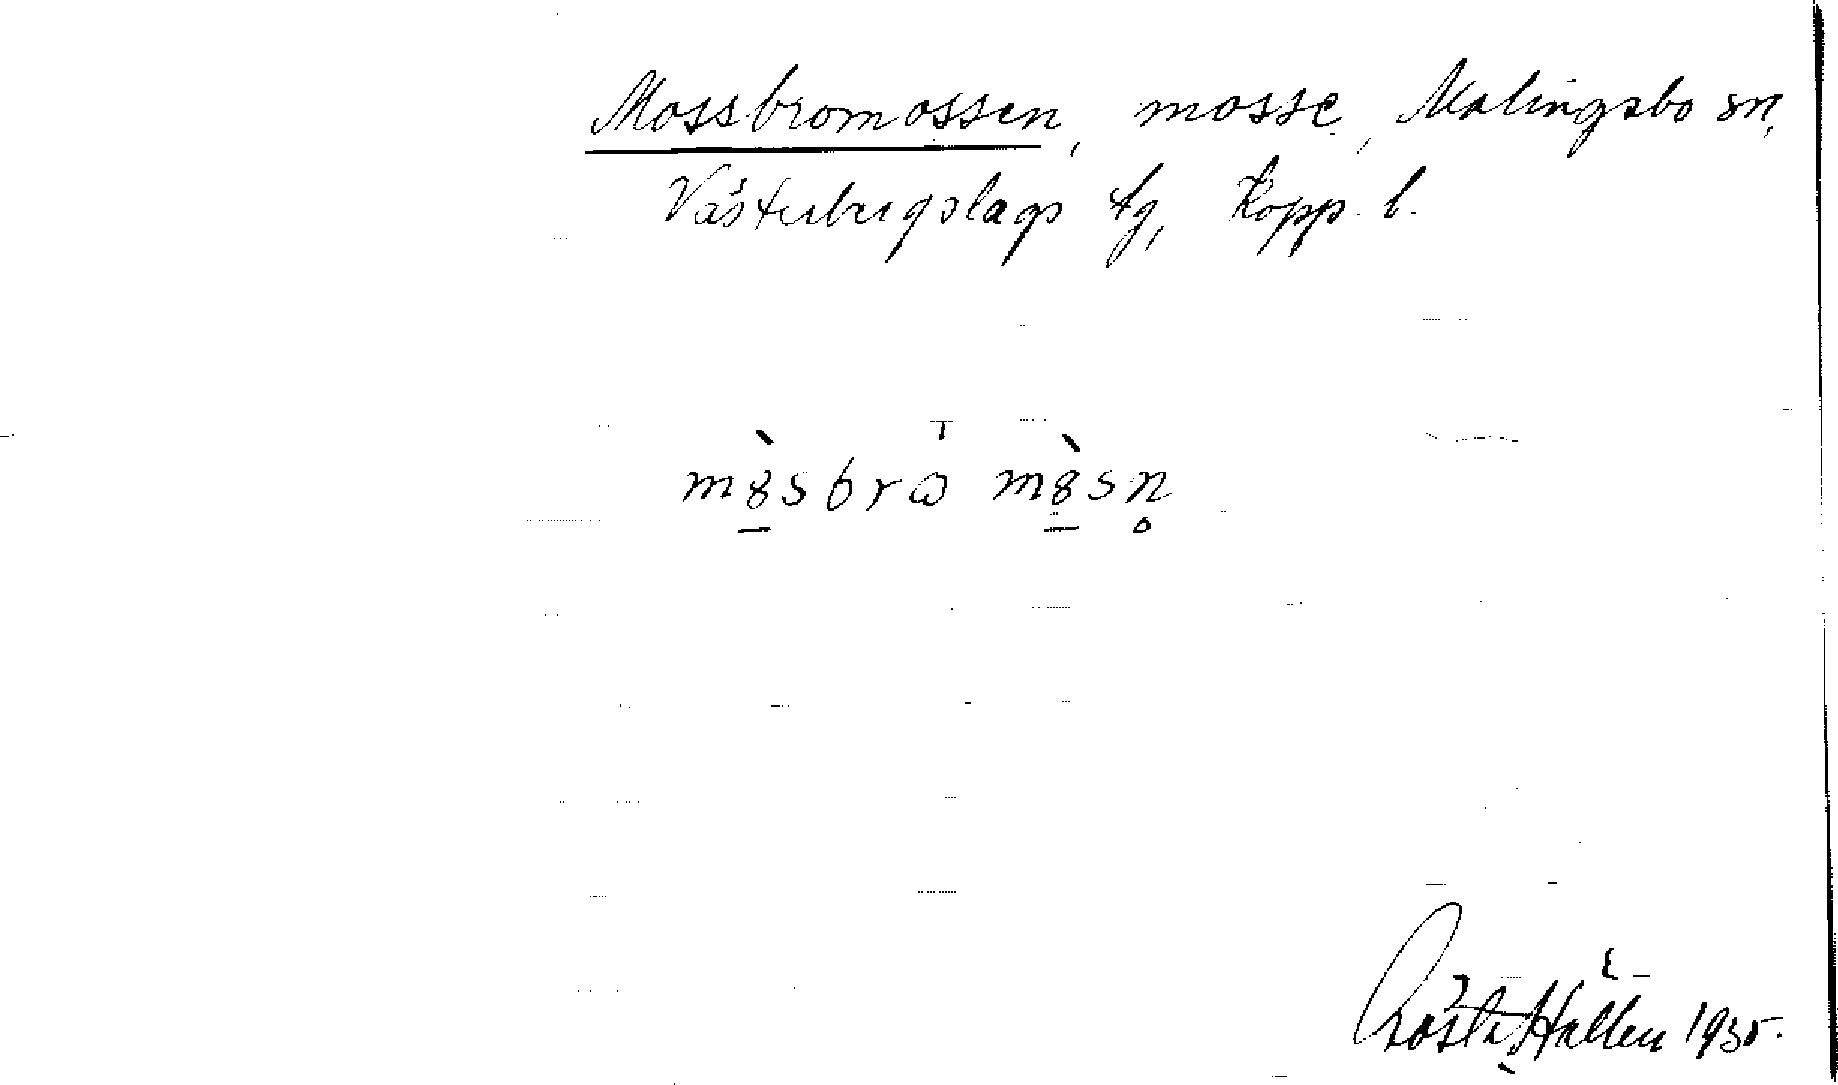 Mossbromossen, mosse, Malingsbo sn,
Västerbergslags tg, Kopp. l.
mȣ̀sbrꞷ mȣ̀sn̥
Gösta Hallén 1935.